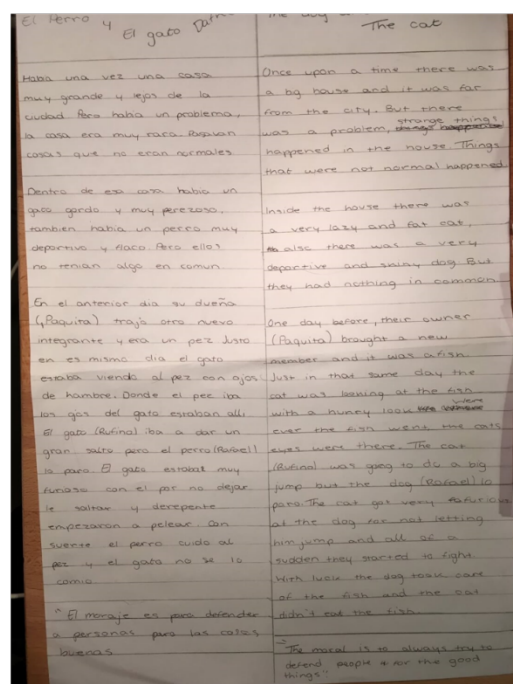 El Perro y
El gato
The cat
Habia una vez una casa
muy grande y lejos de la
ciudad Pero habia un problema,
la casa era muy rara. Pasavan
cosas que no eran normales
Dentro de esa casa habia un
gato gordo y muy perezoso,
tambien habia un perro muy
deportivo y flaco. Pero ellos
no tenian algo en comun
En el anterior dia su dueña
(Paquita) trajo otro nuevo
integrante y era un pez. Justo
en es mismo dia el gato
estaba viendo al pez con ojos
de hambre. Donde el pez iba
los gos del gato estaban alli.
El gato (Rufino) iba a dar un
gran salto pero el perro (Rafael)
lo paro. El gato estabat muy
furioso con el por no dejar
le saltar y derepente
empezaron a pelear. Con
suerte el perro cuido al
pez y el gato no se lo
comio
"El moraje es para defender
a personas para las cosas
buenas
Once upon a time there was
a big house and it was far
from the city. But there
was a problem, strange things,
happened in the house. Things
that were not normal happened.
Inside the house there was
a very lazy and fat cat,
also there was a very
deportive and skiny dog. But
they had nothing in common
One day before, their owner
(Paquita) brought a new
member and it was a fish.
Just in that same day the
cat was looking at the fish
with a huney look were
ever the fish went the cats
eyes were there. The cat
(Rufino) was goeg to do a big
jump bus the dog (Rafael) lo
paro. The cat got very furious
at the dog for not letting
him jump and all of a
sudden they started to fight
With luck the dog took care
of the fish and the cat
didn't eat the fish.
"The moral is to always try to
defend people for the good
things"